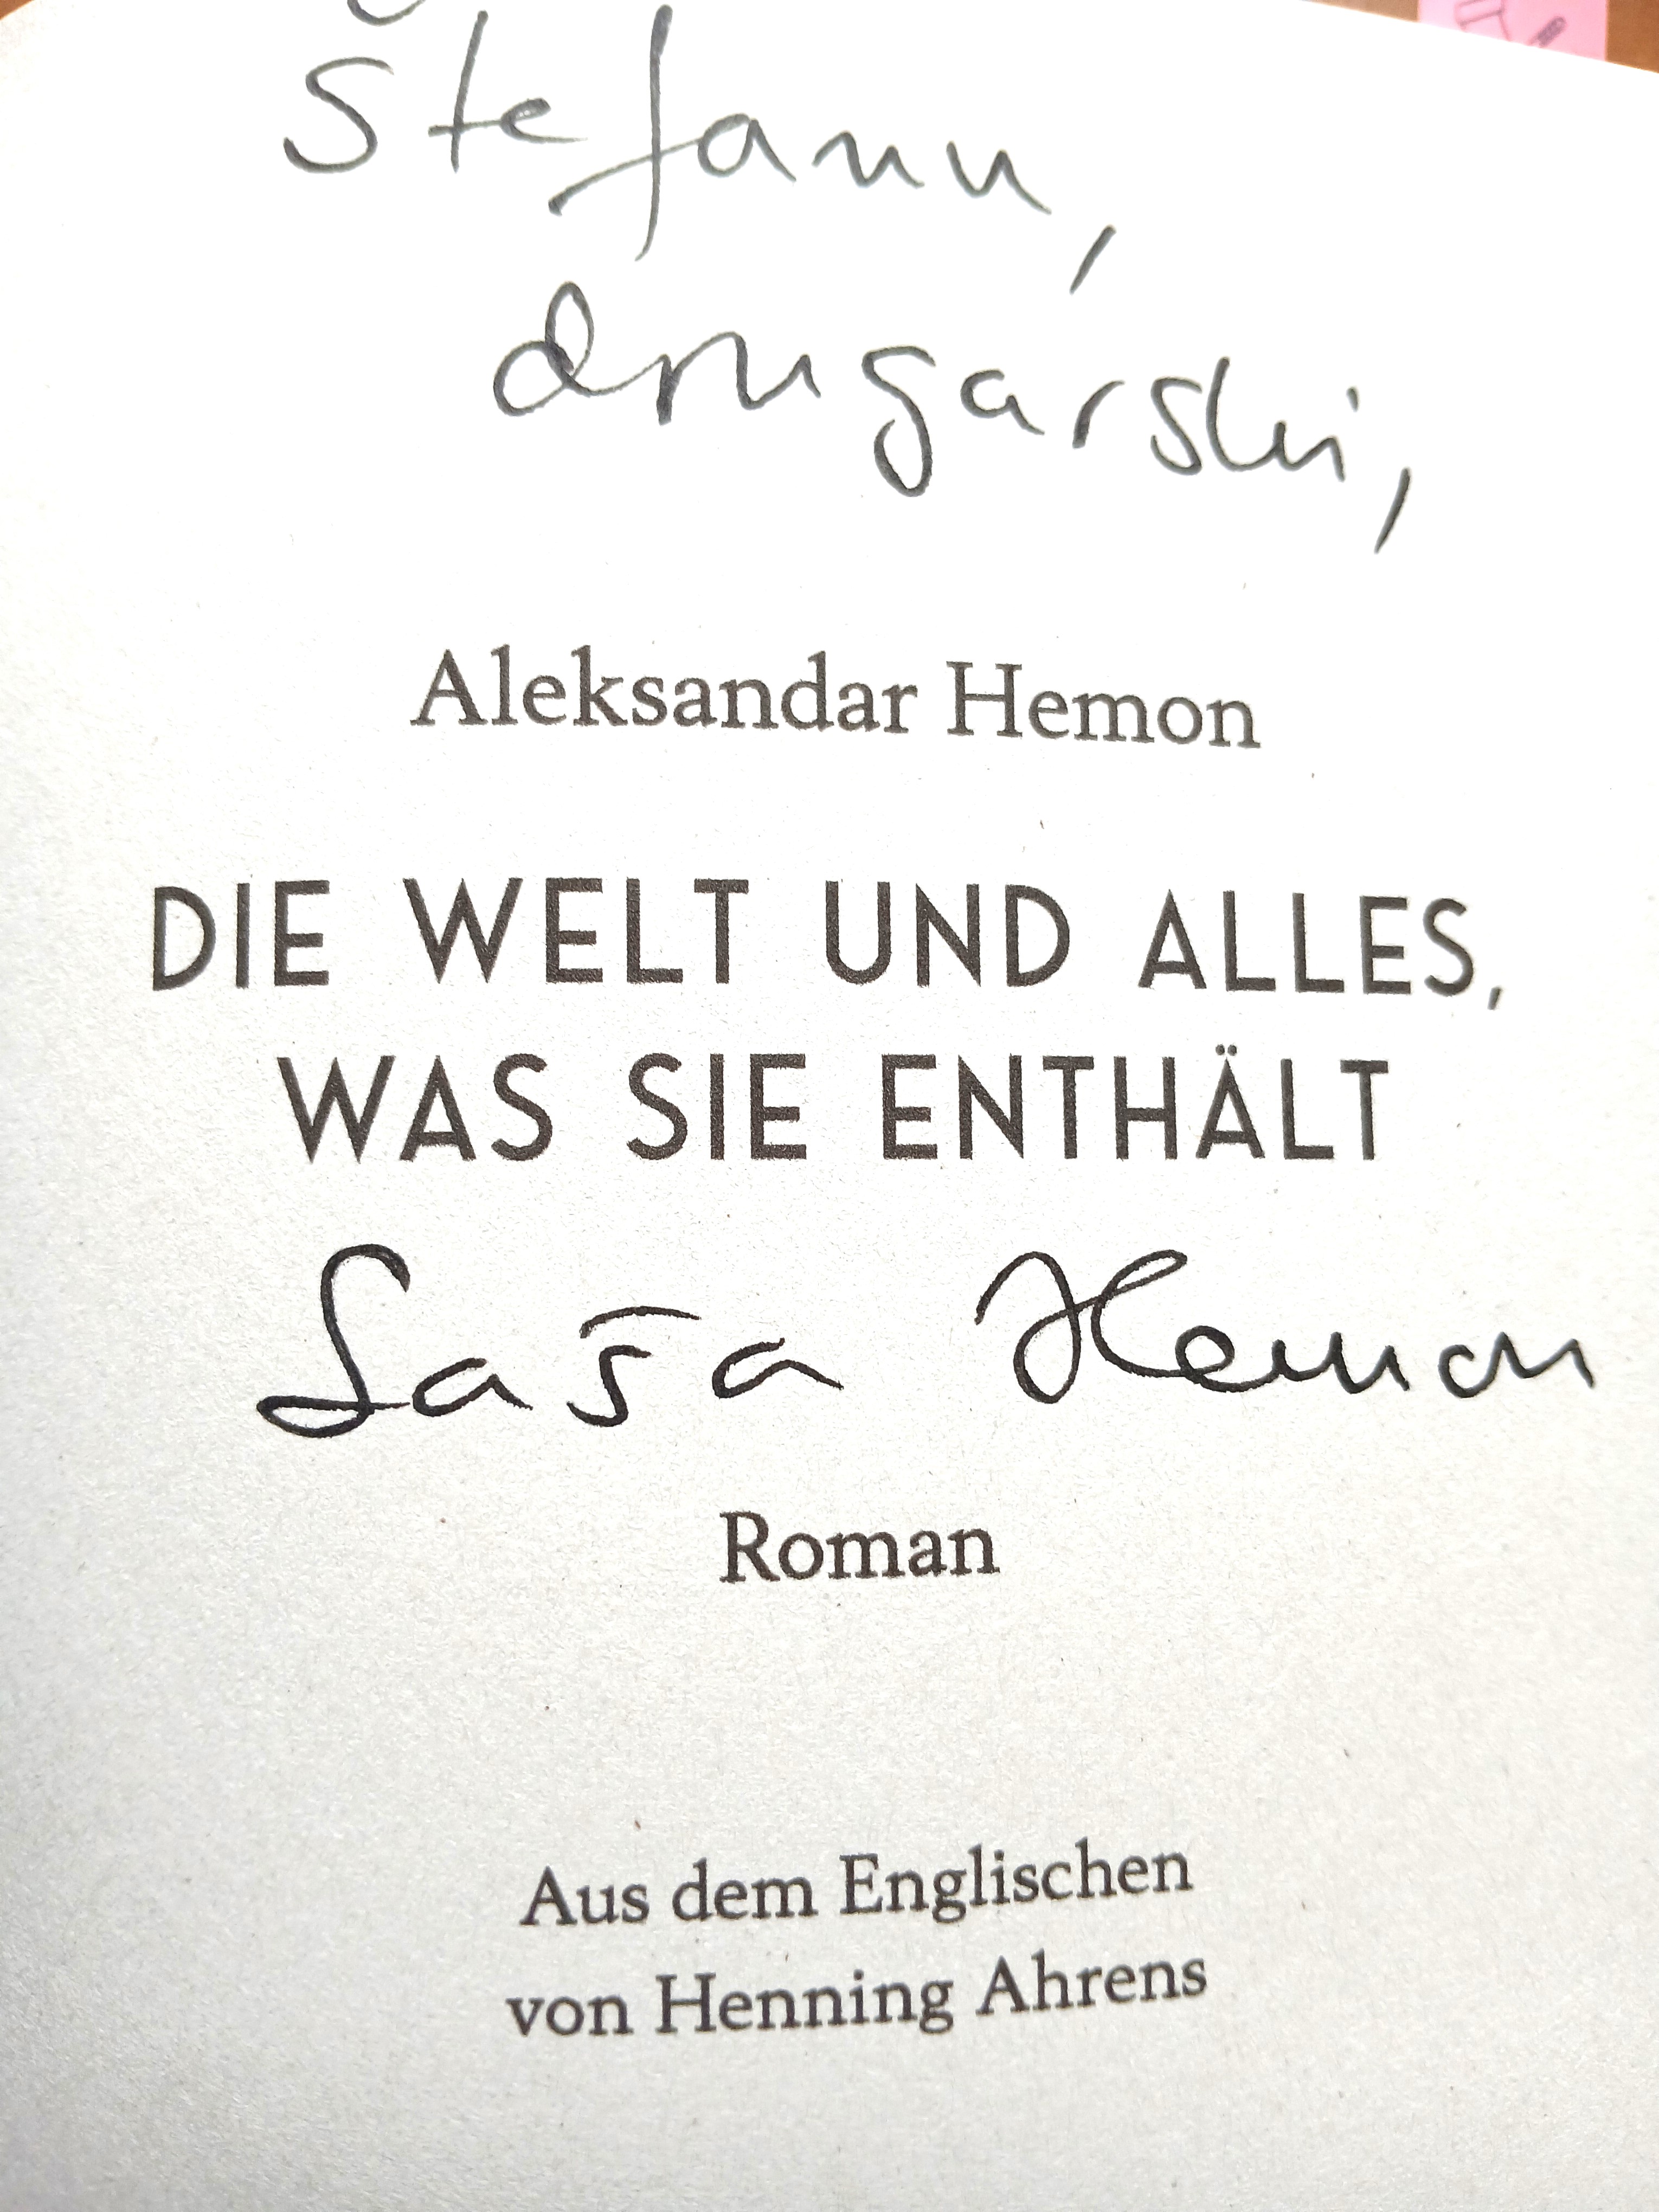 Štefanu,
drugarski,
Aleksandar Hemon
DIE WELT UND ALLES,
WAS SIE ENTHÄLT
Saša Hemon
Roman
Aus dem Englischen
von Henning Ahrens